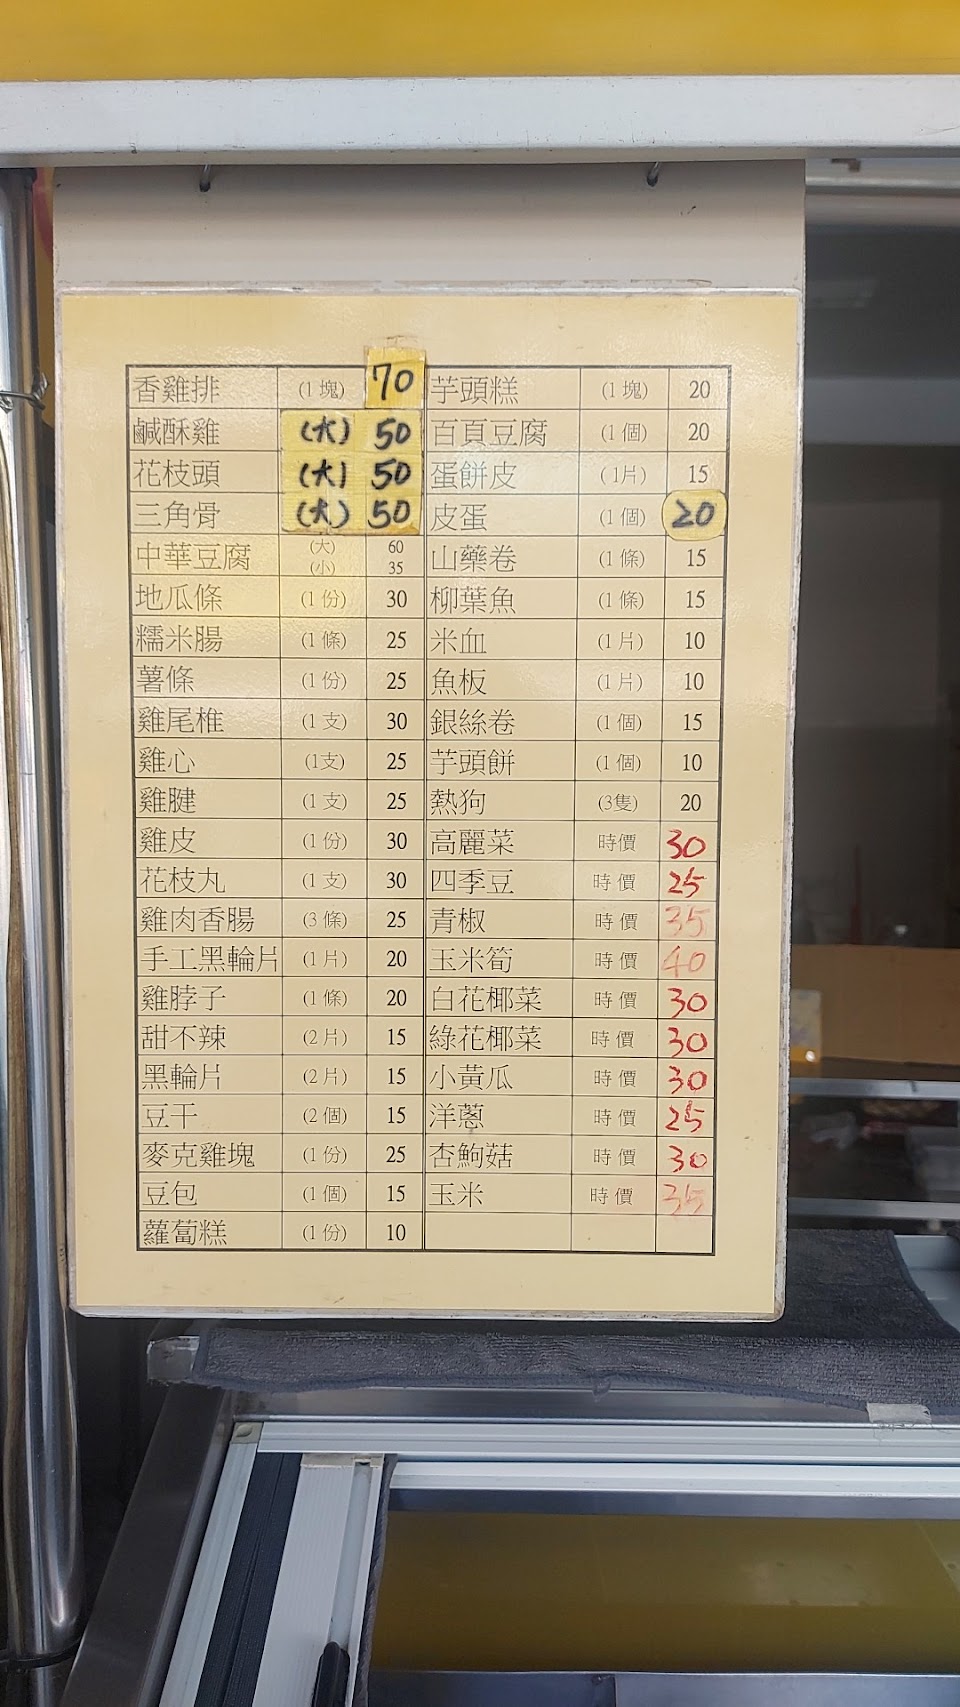 香雞排 (1塊) 70 芋頭糕 (1塊) 20
鹹酥雞 (大) 50 百頁豆腐 (1個) 20
花枝頭 (大) 50 蛋餅皮 (1片) 15
三角骨 (大) 50 皮蛋 (1個) 20
中華豆腐 (大) 60 (小) 35 山藥卷 (1條) 15
地瓜條 (1份) 30 柳葉魚 (1條) 15
糯米腸 (1條) 25 米血 (1片) 10
薯條 (1份) 25 魚板 (1片) 10
雞尾椎 (1支) 30 銀絲卷 (1個) 15
雞心 (1支) 25 芋頭餅 (1個) 10
雞腱 (1支) 25 熱狗 (3隻) 20
雞皮 (1份) 30 高麗菜 時價 30
花枝丸 (1支) 30 四季豆 時價 25
雞肉香腸 (3條) 25 青椒 時價 35
手工黑輪片 (1片) 20 玉米筍 時價 40
雞脖子 (1條) 20 白花椰菜 時價 30
甜不辣 (2片) 15 綠花椰菜 時價 30
黑輪片 (2片) 15 小黃瓜 時價 30
豆干 (2個) 15 洋蔥 時價 25
麥克雞塊 (1份) 25 杏鮑菇 時價 30
豆包 (1個) 15 玉米 時價 35
蘿蔔糕 (1份) 10